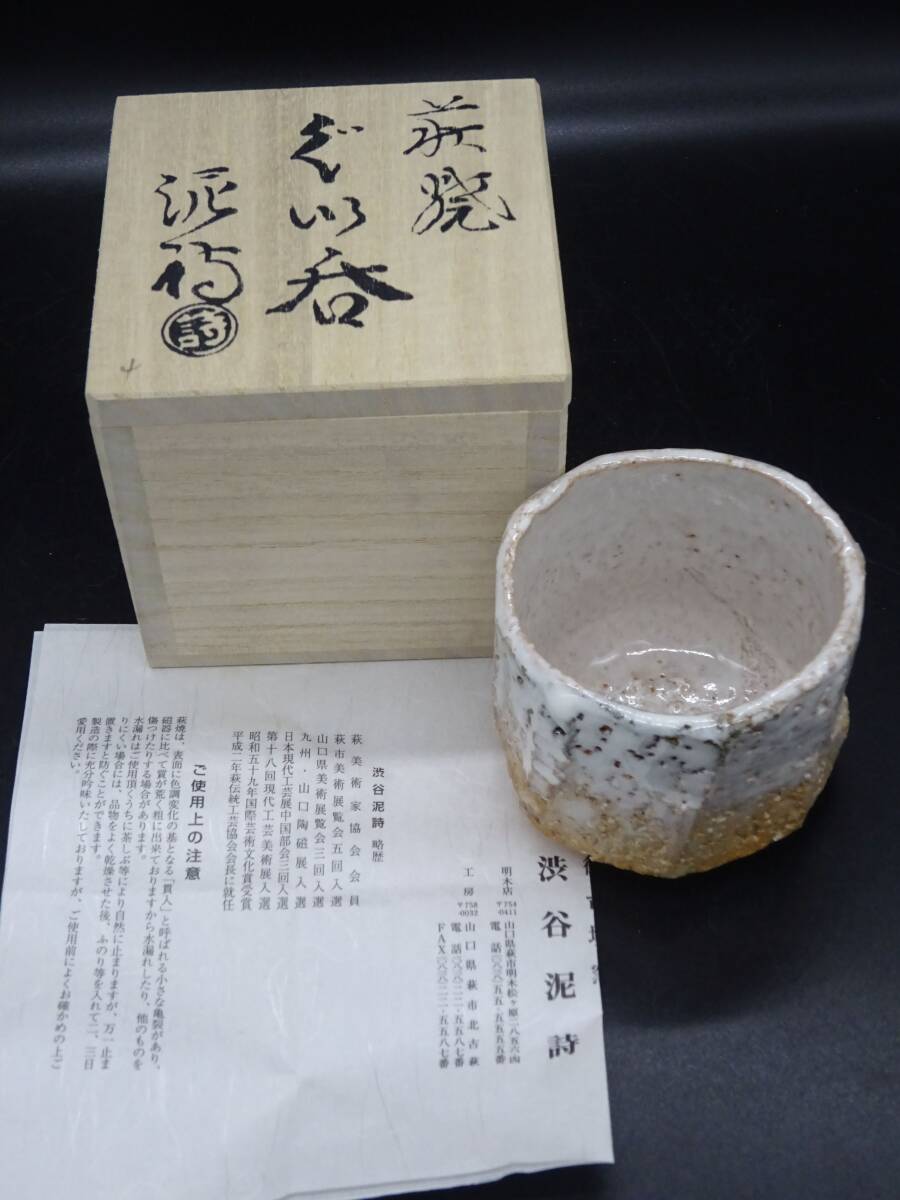 萩焼
ぐい呑
泥詩
詩
渋谷泥詩
明木店 〒754-0411 山口県萩市明木松ヶ原二八五六四
電話〇八三八・五五・五五五五番
工房 〒758-0032 山口県萩市北古萩
電話〇八三八・二二・五五八七番
FAX〇八三八・二二・五五八七番
渋谷泥詩 略歴
萩美術家協会会員
萩市美術展覧会五回入選
山口県美術展覧会三回入選
九州・山口陶磁展入選
日本現代工芸展中国部会三回入選
第十八回現代工芸美術展入選
昭和五十九年国際芸術文化賞受賞
平成二年萩伝統工芸協会会長に就任
ご使用上の注意
萩焼は、表面に色調変化の基となる「貫入」と呼ばれる小さな亀裂があり、
磁器に比べて質が荒く粗に出来ておりますから水漏れしたり、他のものを
傷つけたりする場合があります。
水漏れはご使用頂くうちに茶しぶ等により自然に止まりますが、万一止ま
りにくい場合には、品物をよく乾燥させた後、ふのり等を入れて二、三日
置きますと防ぐことができます。
製造の際に充分吟味いたしておりますが、ご使用前によくお確かめの上ご
愛用ください。